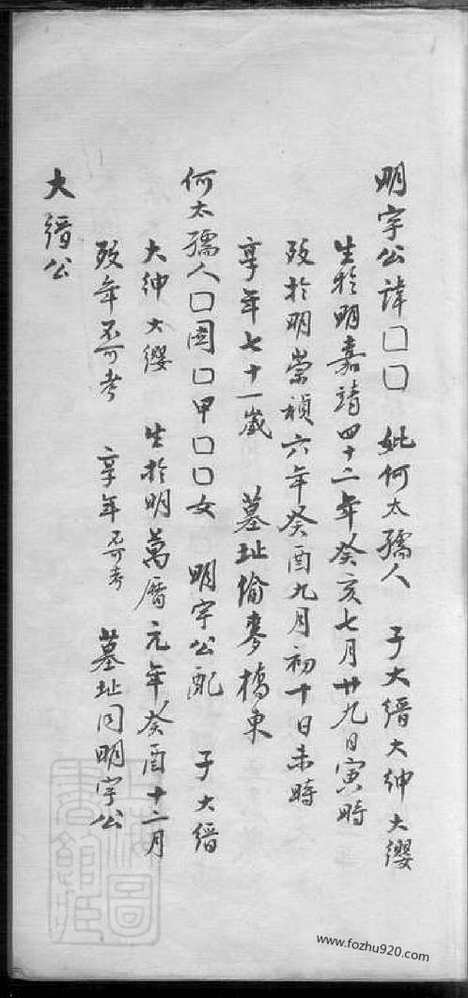 明宇公諱囗囗　妣何太孺人　子大縉大紳大纓
生於明嘉靖四十二年癸亥七月廿九日寅時
歿於明崇禎六年癸酉九月初十日未時
享年七十一歲　墓址偷麥橋東
何太孺人囗图囗甲囗囗女　明宇公配　子大縉
大紳大纓　生於明萬曆元年癸酉十二月
歿年不可考　享年不可考　墓址同明宇公
大縉公
www.fozhu920.com